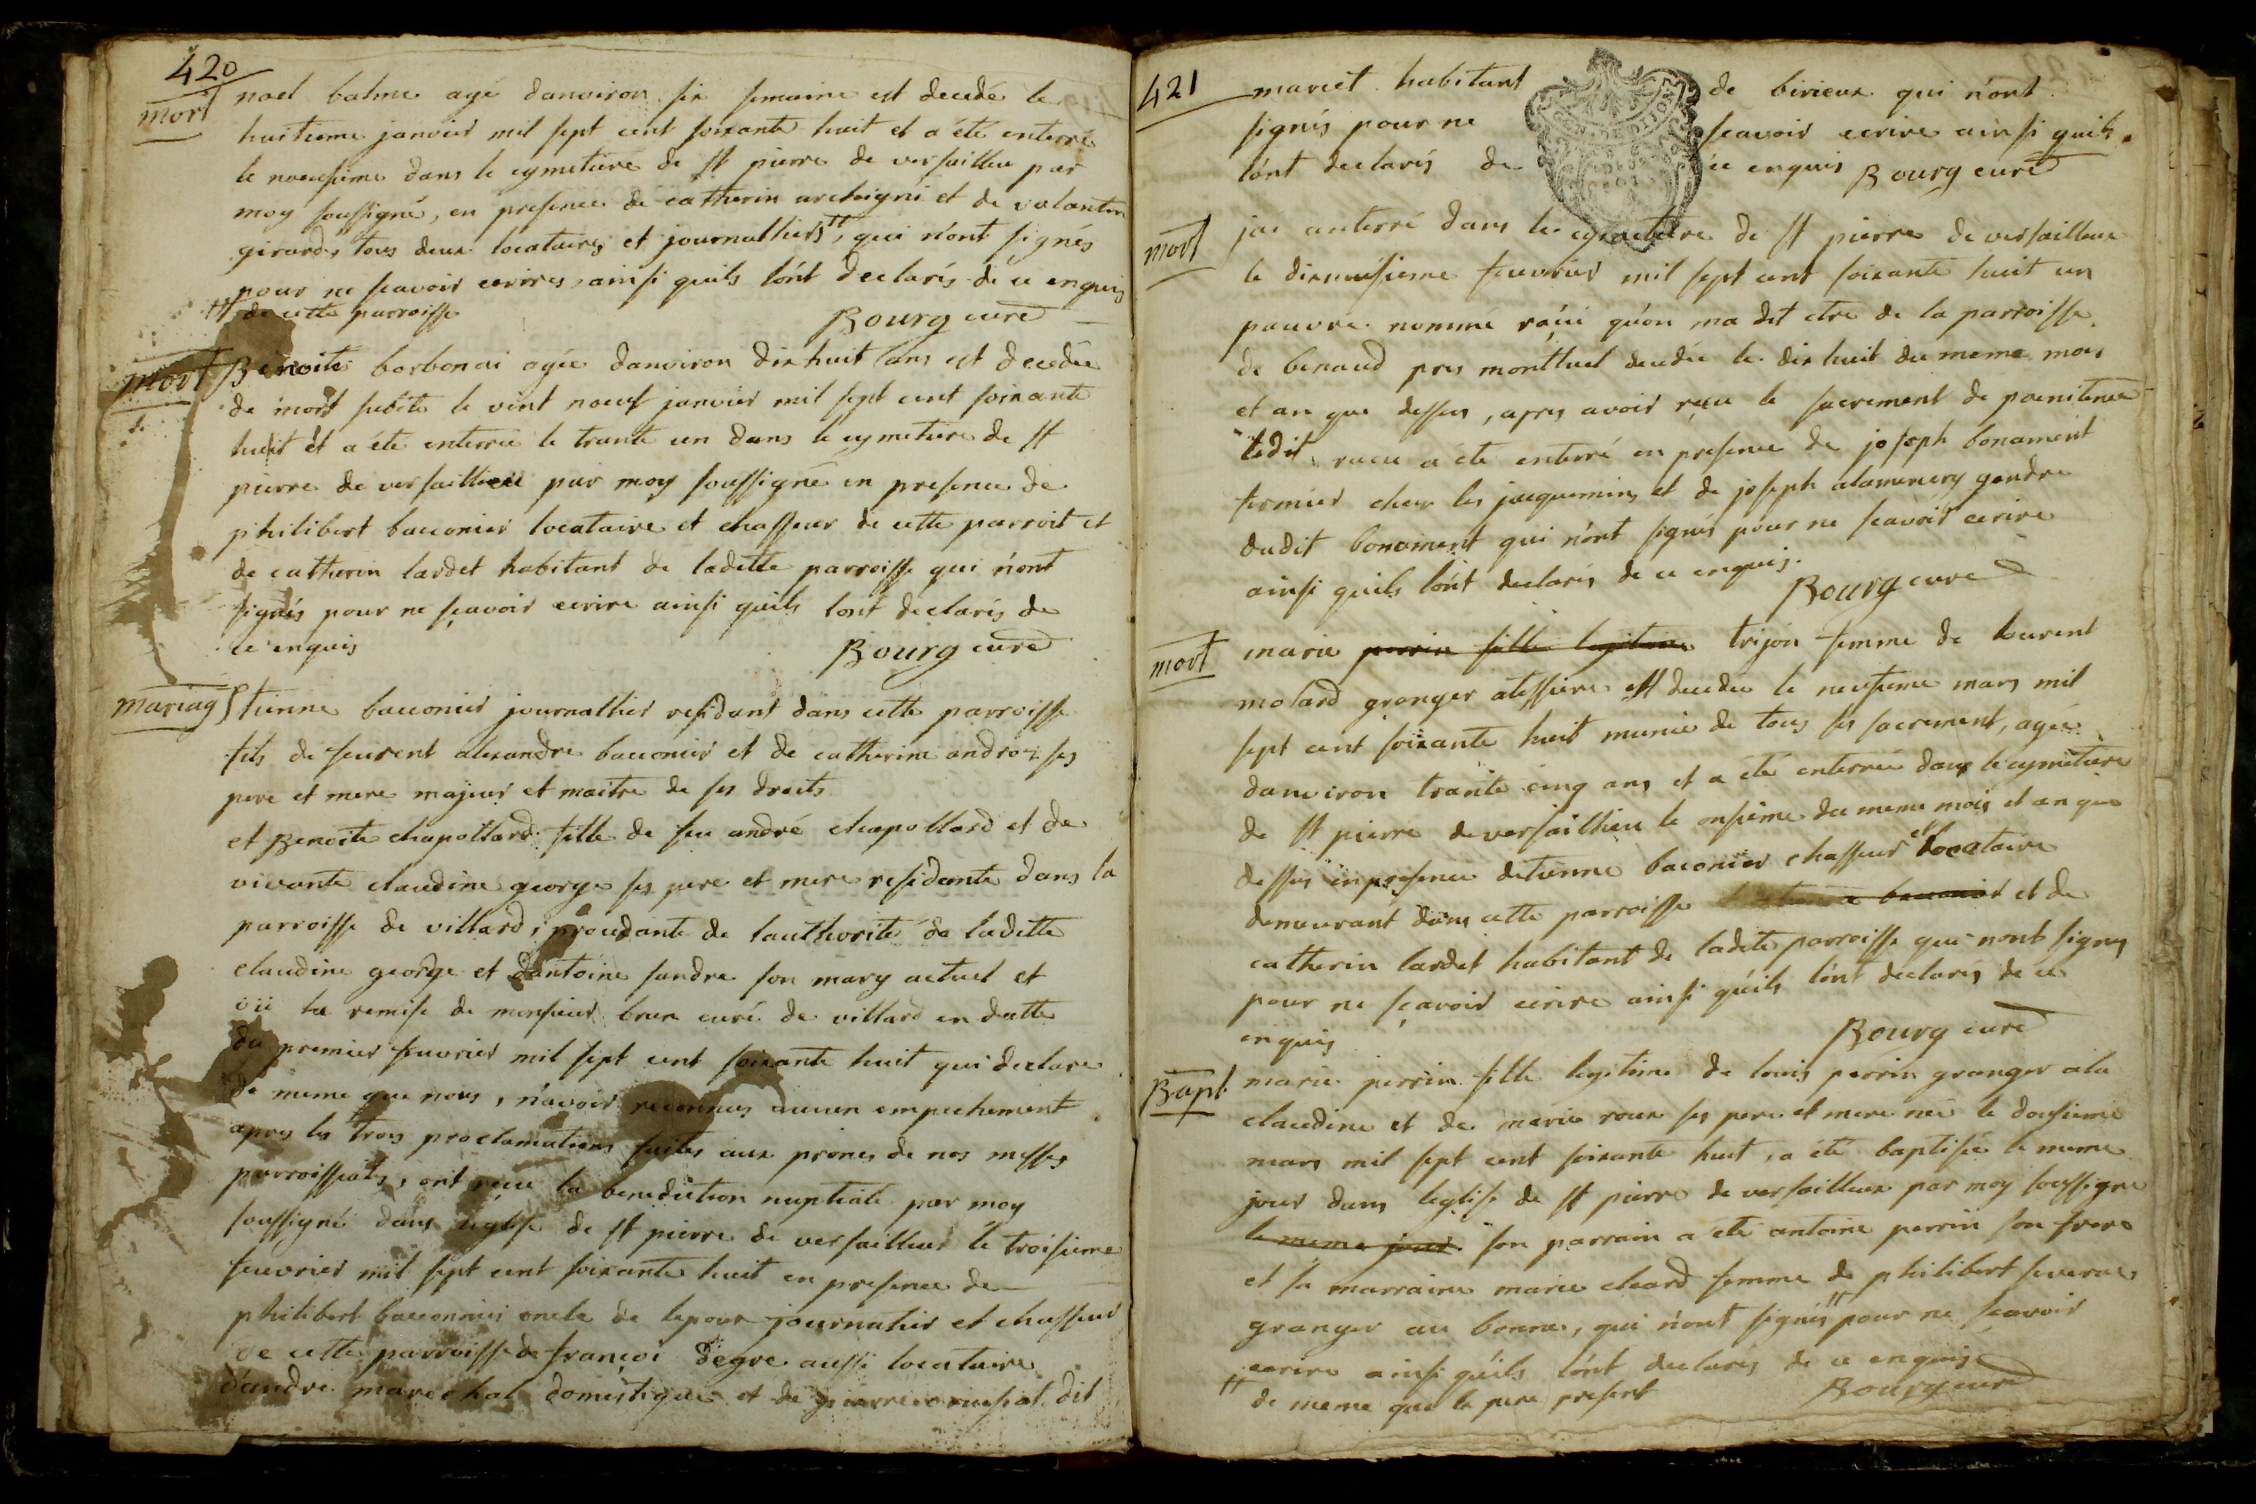 420
mort
noel balme agé danviron six semaine est decedé le
huitieme janvier mil sept cent soixante huit et a été enterré
le noeusieme dans le cymetiere de st pierre de versailleu par
moy soussigné, en presence de catherin archeigni et de valantin
girard, tous deux locataires et journalliers ++, qui n'ont signés
pour ne scavoir ecrires, ainsi quils l'ont declarés de ce enquis
++ de cette parroisse
Bourg curé
mort
Benoite barbonai agée danviron dix huit ans est decedée
de mort subite le vint noeuf janvier mil sept cent soixante
huit et a été enterrée le trante un dans le cymetiere de st
pierre de versaillieu par moy soussigné en presence de
philibert bauconier locataire et chasseur de cette parroit et
de catherin lardet habitant de ladette parroisse qui n'ont
signés pour ne sçavoir ecrire ainsi quils lont declarés de
ce enquis
Bourg curé
mariag
Etienne bauconier journallier residant dans cette parroisse
fils de feurent alexandre bauconier et de catherine androz ses
pere et mere majeur et maitre de ses droits
et Benoite chapollard fille de feu andré chapollard et de
vivante claudine george ses pere et mere residente dans la
parroisse de villard, proudante de lauthorité de ladette
claudine george et dantoine sandre son mary actuel et
vü la remise de monsieur brun curé de villard en datte
du premier feuvrier mil sept cent soixante huit qui declare
de meme que nous, n'avoir reconnus aucun empechement
apres les trois proclamations faites aux prones de nos messes
parroissials, ont reçu la benediction nuptiale par moy
soussigné dans leglise de st pierre de versailleux le troisieme
feuvrier mil sept cent soixante huit en presence de
philibert bauconnier oncle de lepoux journalier et chasseur
de cette parroisse de françoi degre aussi locataire
d'andre marechal domestique et de pierre dit
421
mariet habitant de birieux qui n'ont
signés pour ne scavoir ecrire ainsi quils
l'ont declarés de ce enquis Bourg curé
mort
jai anterré dans le cymetiere de st pierre de versailleux
le dixneusieme feuvrier mil sept cent soixante huit un
pauvre nommé raçu qu'on ma dit etre de la parroisse
de benaud pres montluel decedée le dix huit du meme mois
et an que dessus, apres avoir reçu le sacrement de poenitence
ledit a été enterré en presence de joseph bonament
fermier cheu les jacquemins et de joseph alamercery gendre
dudit bonament qui n'ont signés pour ne scavoir ecrire
ainsi quils l'ont declarés de ce enquis.
Bourg curé
mort
marie perrin fille legitime trijon femme de laurent
molard granger alessiere est decedée le neusieme mars mil
sept cent soixante huit munie de tous ses sacrement, agée
danviron trante cinq ans et a été enterrée dans le cymetiere
de st pierre de versaillieu le onsieme du meme mois et an que
dessus en presence detienne bauconier chasseur et locataire
demeurant dans cette parroisse bauconier et de
catherin lardet habitant de ladite parroisse qui nont signes
pour ne sçavoir ecrire ainsi qu'ils l'ont declarés de ce
enquis
Bourg curé
Bapt.
marie perrin fille legitime de louis perrin granger ala
claudine et de marie roux ses pere et mere née le dousieme
mars mil sept cent soixante huit, a été baptisée le meme
jour dans leglise de st pierre de versailleux par moy soussigne
le meme jour. son parrain a été antoine perrin son frere
et sa marraine marie cleard femme de philibert
granger au bonne, qui n'ont signés ++ pour ne scavoir
ecrire ainsi qu'ils l'ont declarés de ce enquis
++ de meme que le pere present
Bourg curé